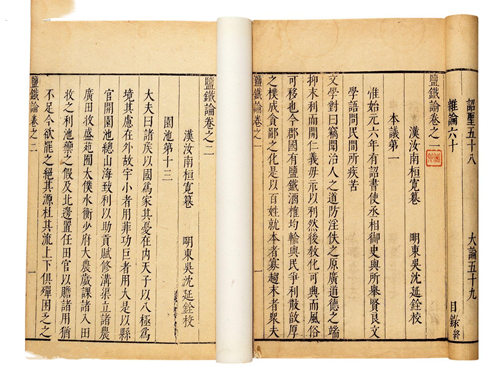 詔聖五十八　大論五十九
雜論六十
目錄終
鹽鐵論卷之一
漢汝南桓寬纂　明東吳沈延銓校
本議第一
惟始元六年有詔書使丞相御史與所舉賢良文
學語問民間所疾苦
文學對曰竊聞治人之道防淫佚之原廣道德之端
抑末利而開仁義毋示以利然後教化可興而風俗
可移也今郡國有鹽鐵酒榷均輸與民爭利散敦厚
之樸成貪鄙之化是以百姓就本者寡趨末者眾夫
鹽鐵論卷之一　一
鹽鐵論卷之二
漢汝南桓寬纂　明東吳沈延銓校
園池第十三
大夫曰諸侯以國為家其憂在內天子以八極為
境其慮在外故宇小者用菲功巨者用大是以縣
官開園池總山海致利以助貢賦修溝渠立諸農
廣田牧盛苑囿太僕水衡少府大農歲課諸入田
牧之利池籞之假及北邊置任田官以贍諸用猶
不足今欲罷之絕其源杜其流上下俱殫困乏之
鹽鐵論卷之二　一